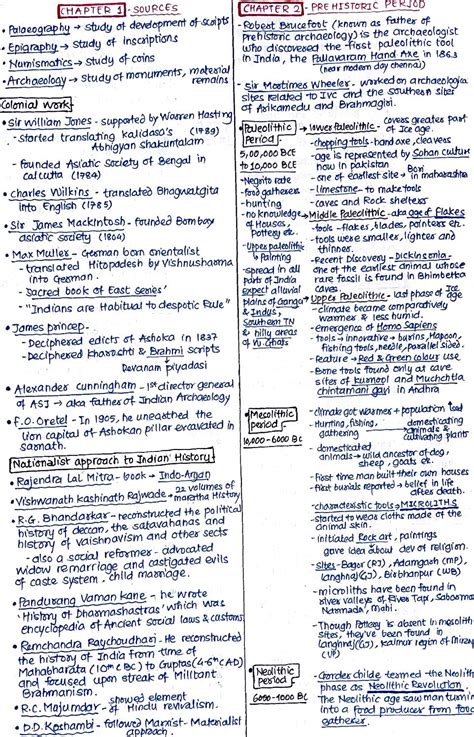 CHAPTER 1 - SOURCES
• Palaeography → study of development of scripts
• Epigraphy → Study of inscriptions
• Numismatics → Study of coins
• Archaeology → Study of monuments, material remains
Colonial work
• Sir William Jones - supported by Warren Hasting
- started translating Kalidasa's (1789)
Abhigyan shakuntalam
- founded Asiatic Society of Bengal in
Calcutta (1784)
• Charles Wilkins - translated Bhagwatgita
into English (1785)
• Sir James Mackintosh - founded Bombay
asiatic society (1804)
• Max Muller - German born orientalist
- translated Hitopadesh by Vishnusharma
into German.
- 'Sacred book of East series'
- "Indians are Habitual to despotic Rule"
• James princep -
- Deciphered edicts of Ashoka in 1837
- Deciphered kharosthi & Brahmi scripts
Devanam piyadasi
• Alexander Cunningham - 1st director general
of ASI → aka father of Indian Archaeology
• F.O. Oretel - In 1905, he unearthed the
lion capital of Ashokan pillar excavated in
sarnath.
Nationalist approach to Indian History
• Rajendra Lal Mitra - book → Indo-Aryan
• Vishwanath kashinath Rajwade → 22 volumes of maratha History
• R.G. Bhandarkar - reconstructed the political
history of deccan, the satavahanas and
history of vaishnavism and other sects
- also a social reformer - advocated
widow remarriage and castigated evils
of caste system, child marriage.
• Pandurang Vaman kane - he wrote
'History of Dharmashastras' which was
encyclopedia of Ancient social laws & customs
• Ramchandra Raychoudhari - He reconstructed
the history of India from time of
Mahabharata (10th C BC) to Guptas (4-6th C AD)
and focused upon streak of Militant
Brahmanism.
• R.C. Majumdar - showed element
of Hindu revivalism.
• D.D. Koshambi - followed Marxist - Materialist
approach
CHAPTER 2 - PREHISTORIC PERIOD
• Robert Brucefoot (known as father of
prehistoric archaeology) is the archaeologist
who discovered the first paleolithic tool
in India, the Pallavaram Hand Axe in 1863
(near modern day chennai)
• Sir Mortimes Wheeler - worked on archaeological
sites related to IVC and the southern sites
of Arikamedu and Brahmagiri.
• Paleolithic Period
5,00,000 BCE
to 10,000 BCE
- Negrito rate
- food gatherers
- hunting
- no knowledge
of Houses,
Pottery etc.
- Upper paleolithic
→ Painting
- spread in all
part of India
except alluvial
plains of Ganga
& Indus,
Southern TN
& hilly areas
of W. Ghats
→ Lower Paleolithic - covers greater part of Ice age.
- chopping tools - hand axe, cleavers
- age is represented by Sohan culture
now in pakistan
- one of earliest site → Bori in maharashtra
- limestone → to make tools
- caves and Rock shelters
→ Middle Paleolithic - aka age of Flakes
- tools → flakes, blades, pointers etc.
- tools were smaller, lighter and
thinner.
- Recent Discovery - Dickinsonia -
one of the earliest animal whose
rare fossil is found in Bhimbetka
caves.
→ Upper Paleolithic - last phase of Ice age
- climate became comparatively
warmer & less humid.
- emergence of Homo Sapiens
- tools → innovative → burins, Hapoon,
fishing tools, needle, parallel sided.
- Feature → Red & Green colour use
- Bone tools found only at cave
sites of kurnool and Muchchtla
chintamani gavi in Andhra
• Mesolithic period
10,000-6000 BC
- climate got warmer → population
- Hunting, fishing, gathering → domesticating animals & cultivating plants
- domesticated
animals → wild ancestor of dog,
sheep, goats etc.
- First time man built their own houses
- first burials reported → belief in life
after death.
- characteristic tools → MICROLITHS
- started to wear cloths made of
animal skin.
- initiated Rock art, paintings
gave idea about dev of religion.
- Sites - Bagor (RJ), Adamgarh (MP),
langhnaj (GJ), Birbhanpur (WB)
- microliths have been found in
river valleys of River Tapi, Sabarmati
Narmada, Mahi.
- Though Pottery is absent in mesolith
sites, they've been found in
langhnaj (GJ), kaimur region of Mirzap
(UP)
• Neolithic period
6000-1000 BC
- Gorden childe termed the Neolith
phase as Neolithic Revolution.
The Neolithic age saw man turning
into a food producer from food
gatherer.